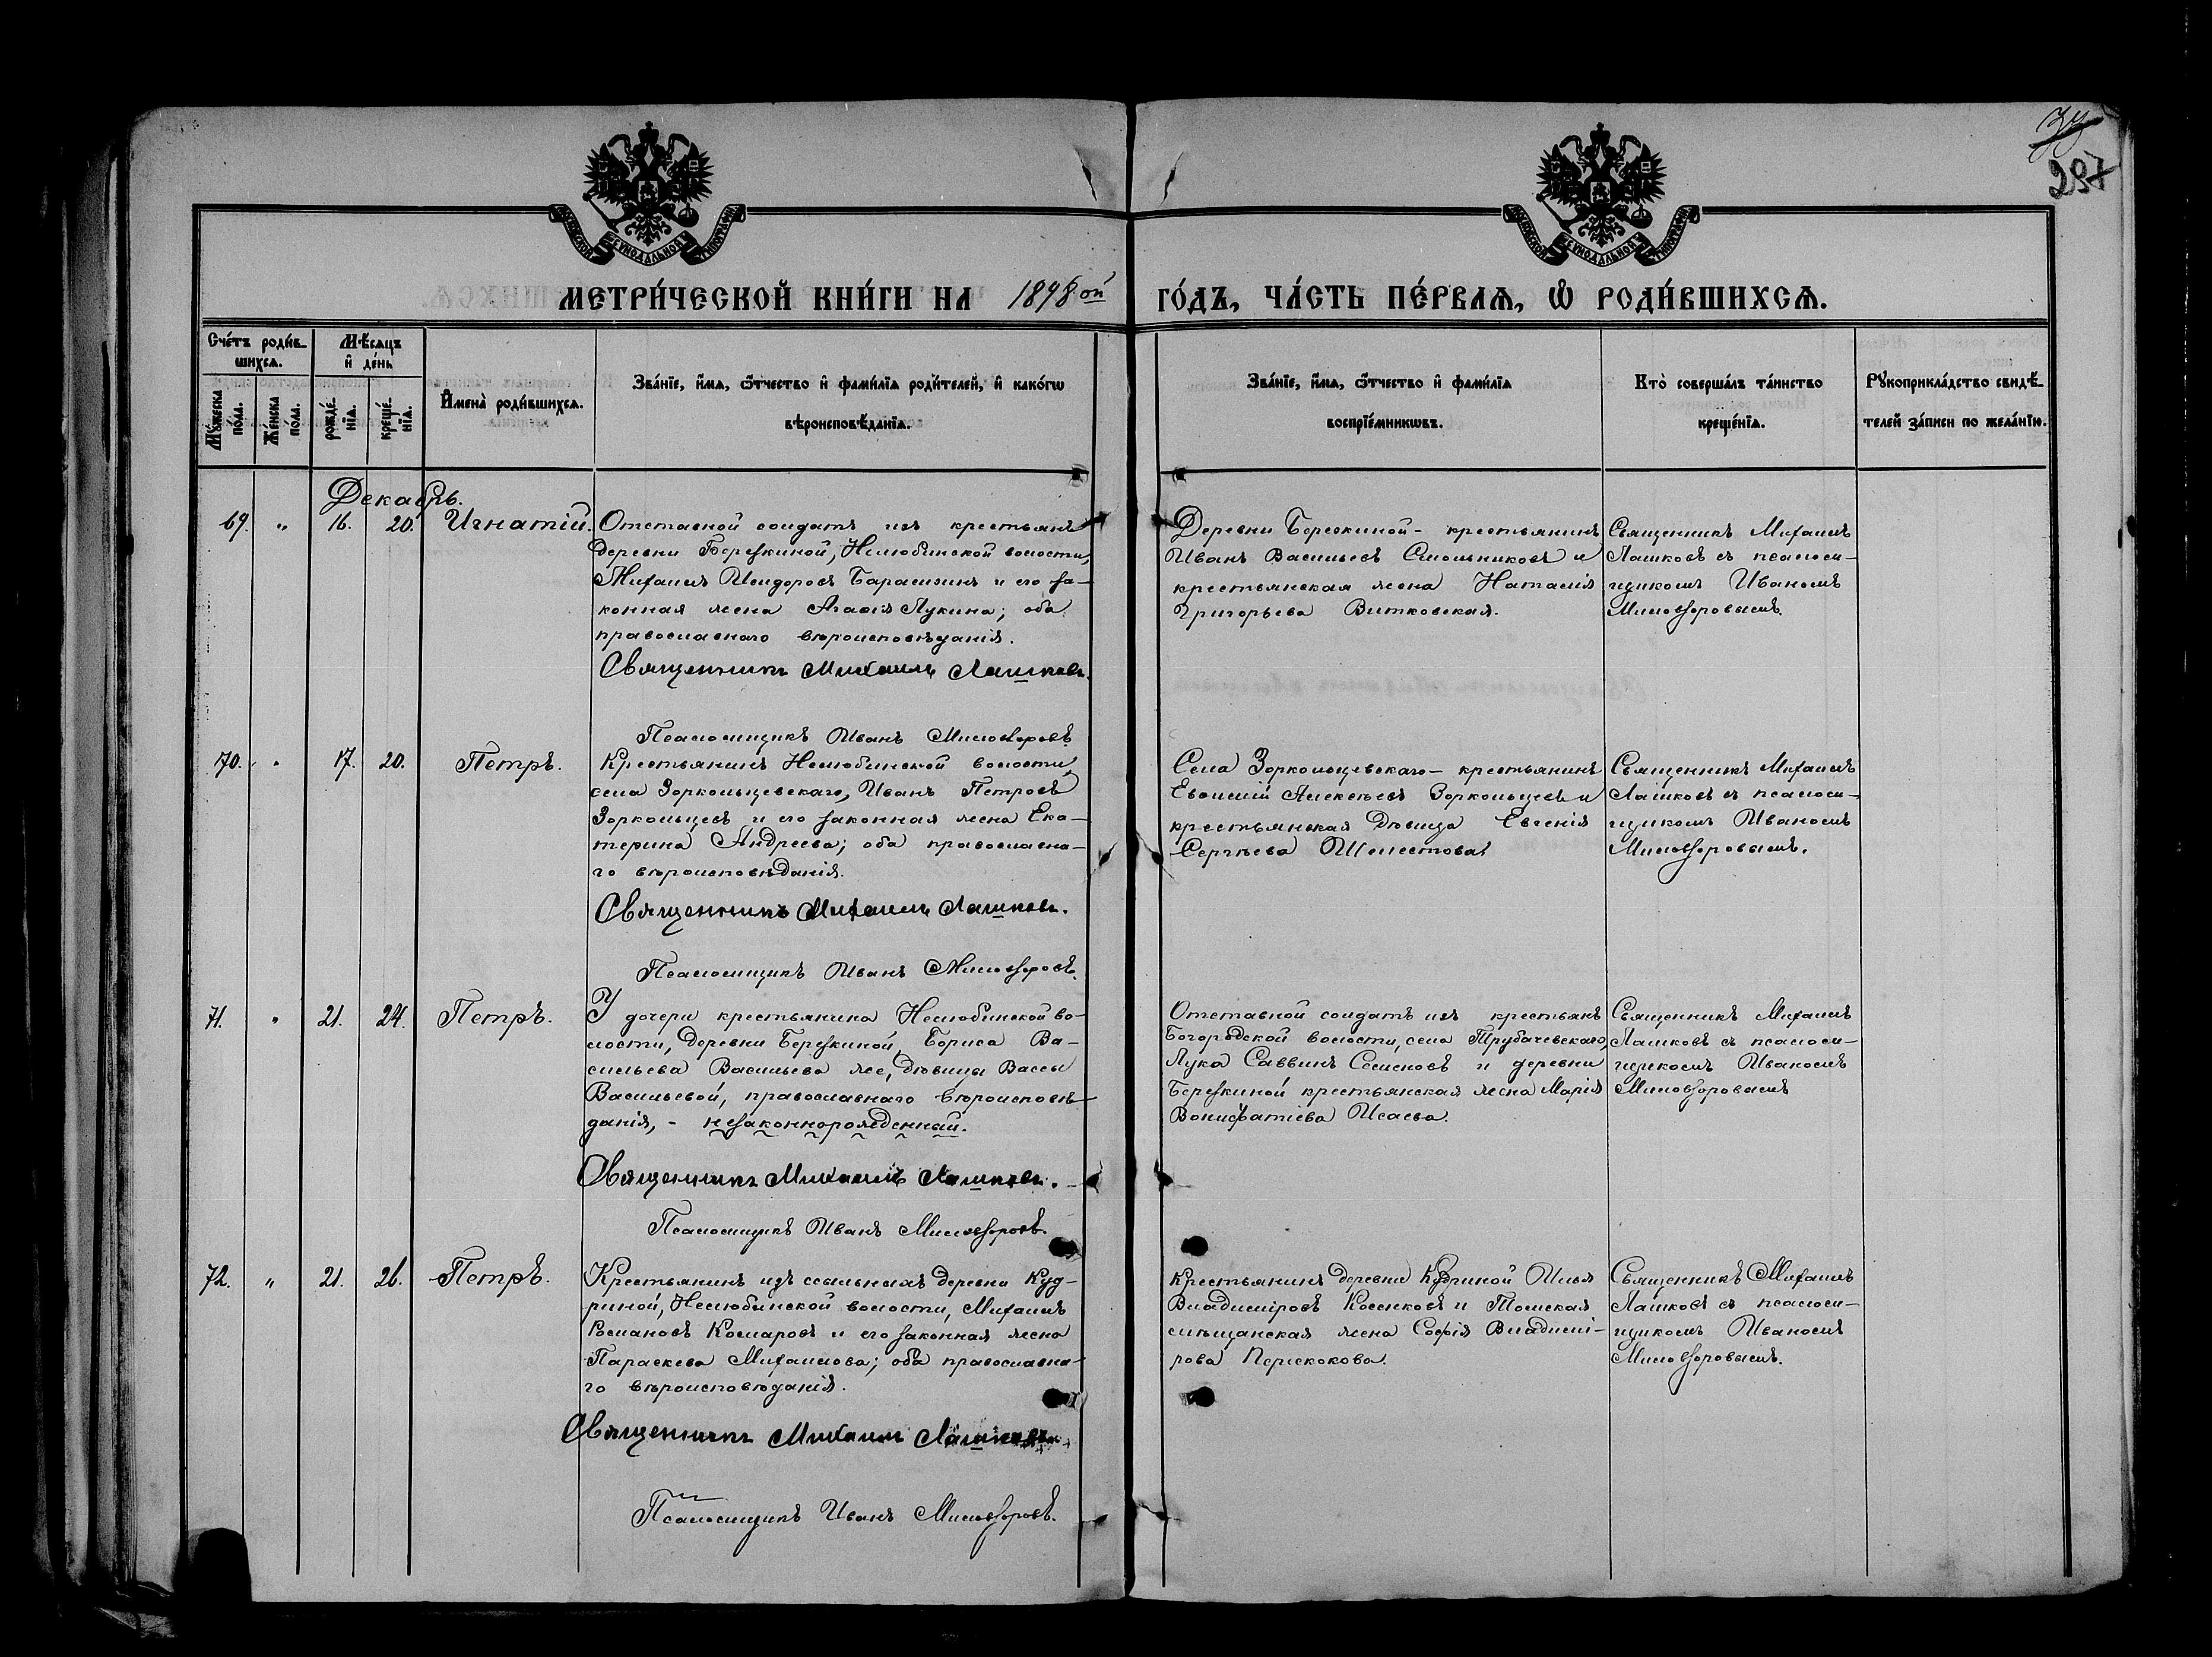 37
297
МЕТРИ́ЧЕСКОЙ КНИ́ГИ НА 1898 ой ГО́ДЪ, ЧА́СТЬ ПЕ́РВАЯ, Ѡ РОДИ́ВШИХСЯ.
Сче́тъ роди́в-
шихся.
Мѣ́сяцъ
и де́нь
Мꙋ́жеска по́ла.
Же́нска по́ла.
рожде́-
нїѧ.
креще́-
нїѧ.
Имена̀ роди́вшихсѧ.
Зва́нїе, и́мѧ, ѻ́тчество и фами́лїѧ роди́телей, и како́гѡ
вѣроисповѣ́данїѧ.
Зва́нїе, и́мѧ, ѻ́тчество и фами́лїѧ
воспрїе́мникѡвъ.
Кто̀ соверша́лъ та́инство
креще́нїѧ.
Рꙋкоприкла́дство свидѣ́-
телей за́писи по жела́нїю.
Декабрь.
69. " 16. 20. Игнатій.
Отставной солдатъ изъ крестьянъ
деревни Березкиной, Нелюбинской волости,
Михаилъ Исидоровъ Барашкинъ и его за-
конная жена Агаѳія Лукина; оба
православнаго вѣроисповѣданія.
Священникъ Михаилъ Лашковъ.
Псаломщикъ Иванъ Миловзоровъ.
Деревни Березкиной - крестьянинъ
Иванъ Васильевъ Смольниковъ и
крестьянская жена Наталія
Григорьева Витковская.
Священникъ Михаилъ
Лашковъ съ псалом-
щикомъ Иваномъ
Миловзоровымъ.
70. " 17. 20. Петръ.
Крестьянинъ Нелюбинской волости,
села Зоркольцевскаго, Иванъ Петровъ
Зоркольцевъ и его законная жена Ека-
терина Андреева; оба православна-
го вѣроисповѣданія.
Священникъ Михаилъ Лашковъ.
Псаломщикъ Иванъ Миловзоровъ.
Села Зоркольцевскаго - крестьянинъ
Евѳимій Алексѣевъ Зоркольцевъ и
крестьянская дѣвица Евгенія
Сергѣева Шелестова.
Священникъ Михаилъ
Лашковъ съ псалом-
щикомъ Иваномъ
Миловзоровымъ.
71. " 21. 24. Петръ.
У дочери крестьянина Нелюбинской во-
лости, деревни Березкиной, Бориса Ва-
сильева Васильева же, дѣвицы Вассы
Васильевой, православнаго вѣроисповѣ-
данія, - незаконнорожденный.
Священникъ Михаилъ Лашковъ.
Псаломщикъ Иванъ Миловзоровъ.
Отставной солдатъ изъ крестьянъ
Богородской волости, села Трубачевскаго,
Лука Саввинъ Семеновъ и деревни
Березкиной крестьянская жена Марія
Вонифатіева Исаева.
Священникъ Михаилъ
Лашковъ съ псалом-
щикомъ Иваномъ
Миловзоровымъ
72. " 21. 26. Петръ.
Крестьянинъ изъ ссыльныхъ деревни Куд-
риной, Нелюбинской волости, Михаилъ
Романовъ Комаровъ и его законная жена
Параскева Михаилова; оба православна-
го вѣроисповѣданія.
Священникъ Михаилъ Лашковъ
Псаломщикъ Иванъ Миловзоровъ.
Крестьянинъ деревни Кудриной Илья
Владиміровъ Косенковъ и Томская
мѣщанская жена Софія Владимі-
рова Перескокова.
Священникъ Михаилъ
Лашковъ съ псалом-
щикомъ Иваномъ
Миловзоровымъ.